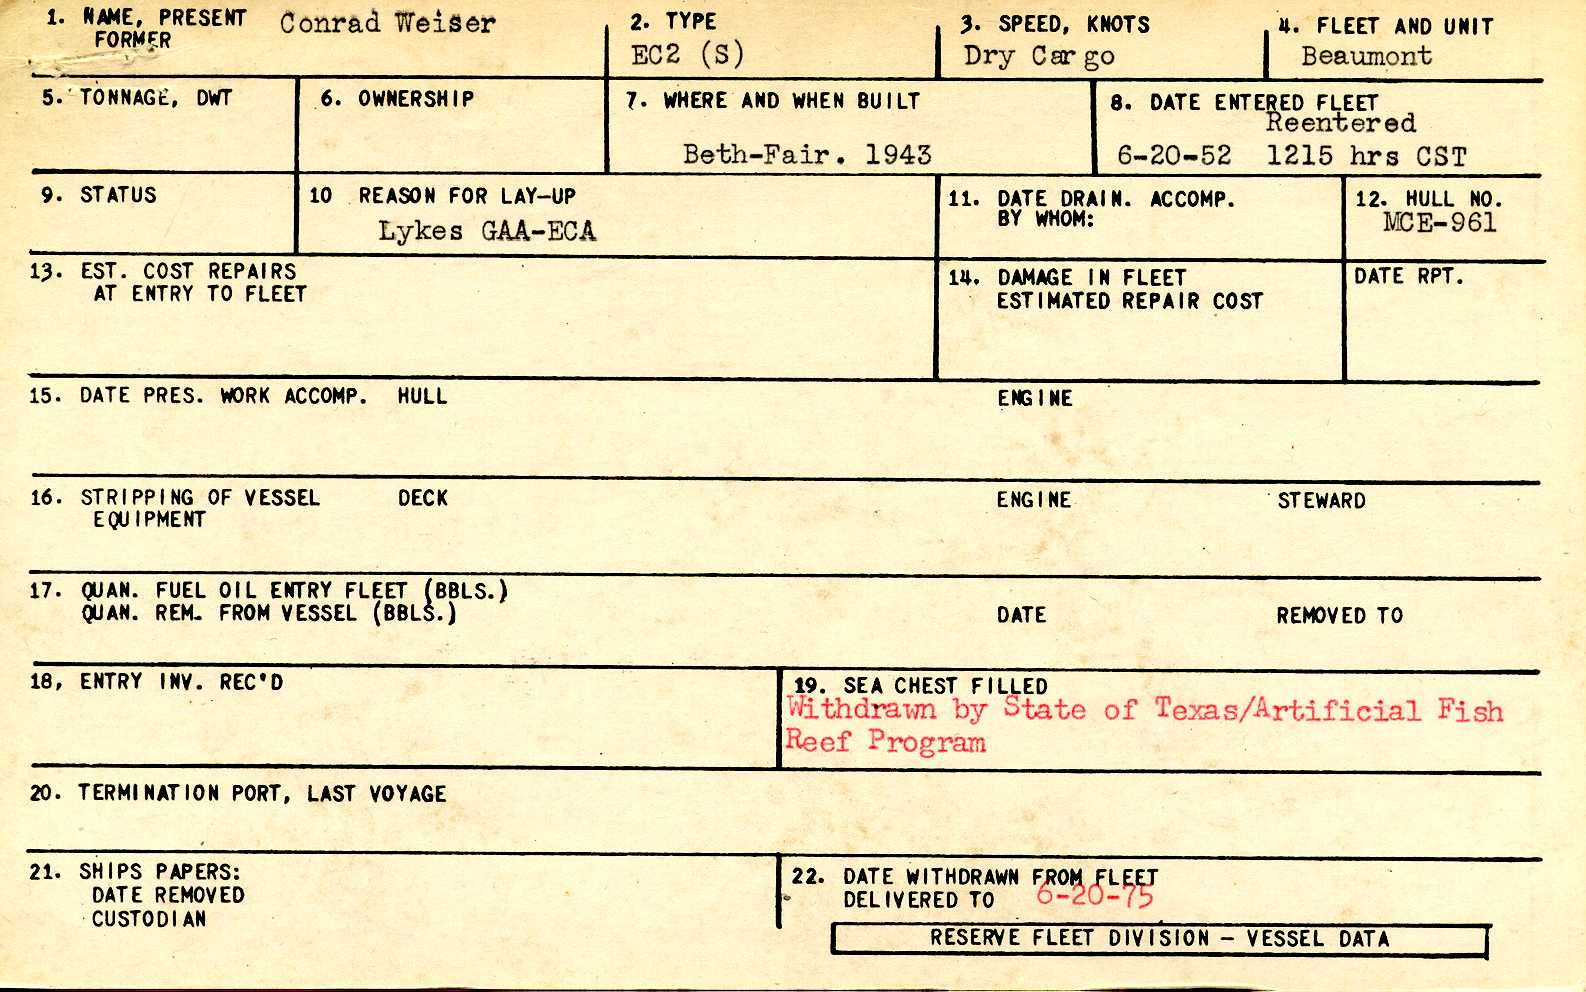 1. NAME, PRESENT Conrad Weiser
FORMER
2. TYPE
EC2 (S)
3. SPEED, KNOTS
Dry Cargo
4. FLEET AND UNIT
Beaumont
5. TONNAGE, DWT
6. OWNERSHIP
7. WHERE AND WHEN BUILT
Beth-Fair. 1943
8. DATE ENTERED FLEET
Reentered
6-20-52 1215 hrs CST
9. STATUS
10 REASON FOR LAY-UP
Lykes GAA-ECA
11. DATE DRAIN. ACCOMP.
BY WHOM:
12. HULL NO.
MCE-961
13. EST. COST REPAIRS
AT ENTRY TO FLEET
14. DAMAGE IN FLEET
ESTIMATED REPAIR COST
DATE RPT.
15. DATE PRES. WORK ACCOMP. HULL ENGINE
16. STRIPPING OF VESSEL DECK ENGINE STEWARD
EQUIPMENT
17. QUAN. FUEL OIL ENTRY FLEET (BBLS.)
QUAN. REM. FROM VESSEL (BBLS.) DATE REMOVED TO
18, ENTRY INV. REC'D
19. SEA CHEST FILLED
Withdrawn by State of Texas/Artificial Fish
Reef Program
20. TERMINATION PORT, LAST VOYAGE
21. SHIPS PAPERS:
DATE REMOVED
CUSTODIAN
22. DATE WITHDRAWN FROM FLEET
DELIVERED TO 6-20-75
RESERVE FLEET DIVISION - VESSEL DATA